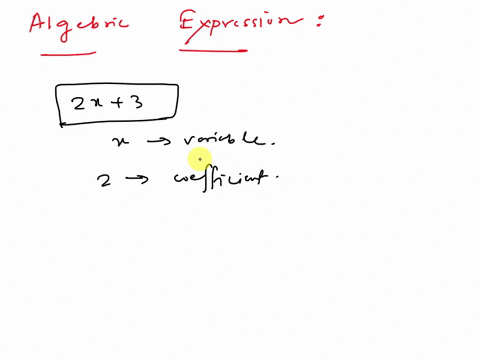 Algebric Expression:
2x+3
x → variable.
2 → coefficient.